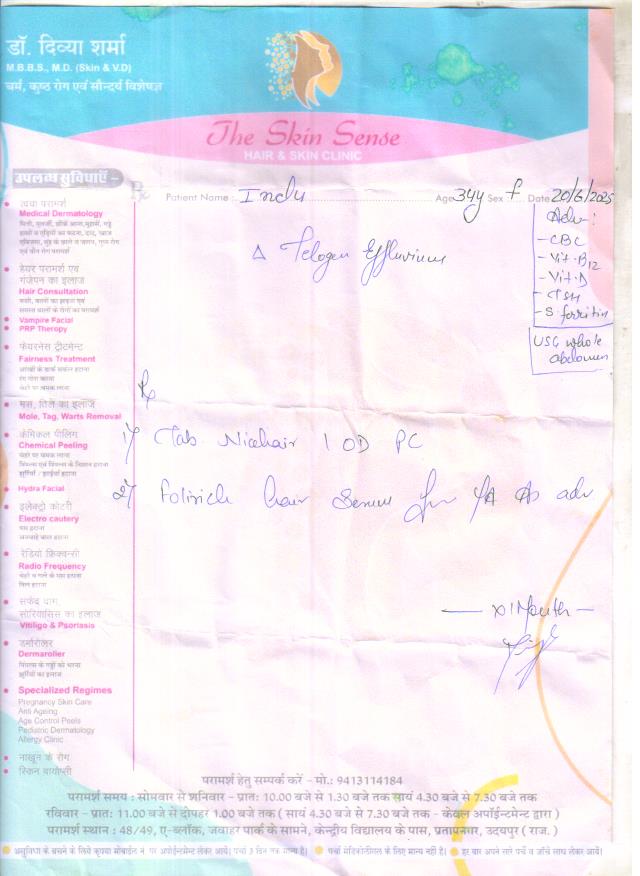 डॉ. दिव्या शर्मा
M.B.B.S., M.D. (Skin & V.D)
चर्म, कुष्ठ रोग एवं सौन्दर्य विशेषज्ञ
The Skin Sense
HAIR & SKIN CLINIC
उपलब्ध सुविधाएँ –
Rx Patient Name : Indu Age 34y Sex f Date 20/6/2025
Adv:
- CBC
- Vit. B12
- Vit. D
- TSH
- S. ferritin
USG whole
abdomen
Δ Telogen Effluvium
त्वचा परामर्श
Medical Dermatology
हेयर परामर्श एवं
गंजेपन का इलाज
Hair Consultation
Vampire Facial
PRP Theropy
फेयरनेस ट्रीटमेन्ट
Fairness Treatment
मस, तिल का इलाज
Mole, Tag, Warts Removal
कैमिकल पीलिंग
Chemical Peeling
Hydra Facial
इलेक्ट्रो कोटरी
Electro cautery
रेडियो फ्रिक्वन्सी
Radio Frequency
सफेद दाग,
सोरियासिस का इलाज
Vitiligo & Psoriasis
डर्मारोलर
Dermaroller
Specialized Regimes
Pregnancy Skin Care
Anti Ageing
Age Control Peels
Pediatric Dermatology
Allergy Clinic
नाखून के रोग
स्किन बायोप्सी
Rx
1) Tab Nicehair 1 OD PC
2) hair Serum for as adv
— x 1 Month —
परामर्श हेतु सम्पर्क करें – मो.: 9413114184
परामर्श समय : सोमवार से शनिवार – प्रात: 10.00 बजे से 1.30 बजे तक सायं 4.30 बजे से 7.30 बजे तक
रविवार – प्रात: 11.00 बजे से दोपहर 1.00 बजे तक ( सायं 4.30 बजे से 7.30 बजे तक - केवल अपॉईन्टमेन्ट द्वारा )
परामर्श स्थान : 48/49, ए-ब्लॉक, जवाहर पार्क के सामने, केन्द्रीय विद्यालय के पास, प्रतापनगर, उदयपुर ( राज. )
असुविधा से बचने के लिये कृपया मोबाईल नं. पर अपोईंटमेंट लेकर आयें। पर्चा 3 दिन तक मान्य है। पर्चा मेडिकोलीगल के लिए मान्य नहीं है। हर बार अपने सारे पर्चे व जाँचे साथ लेकर आयें।